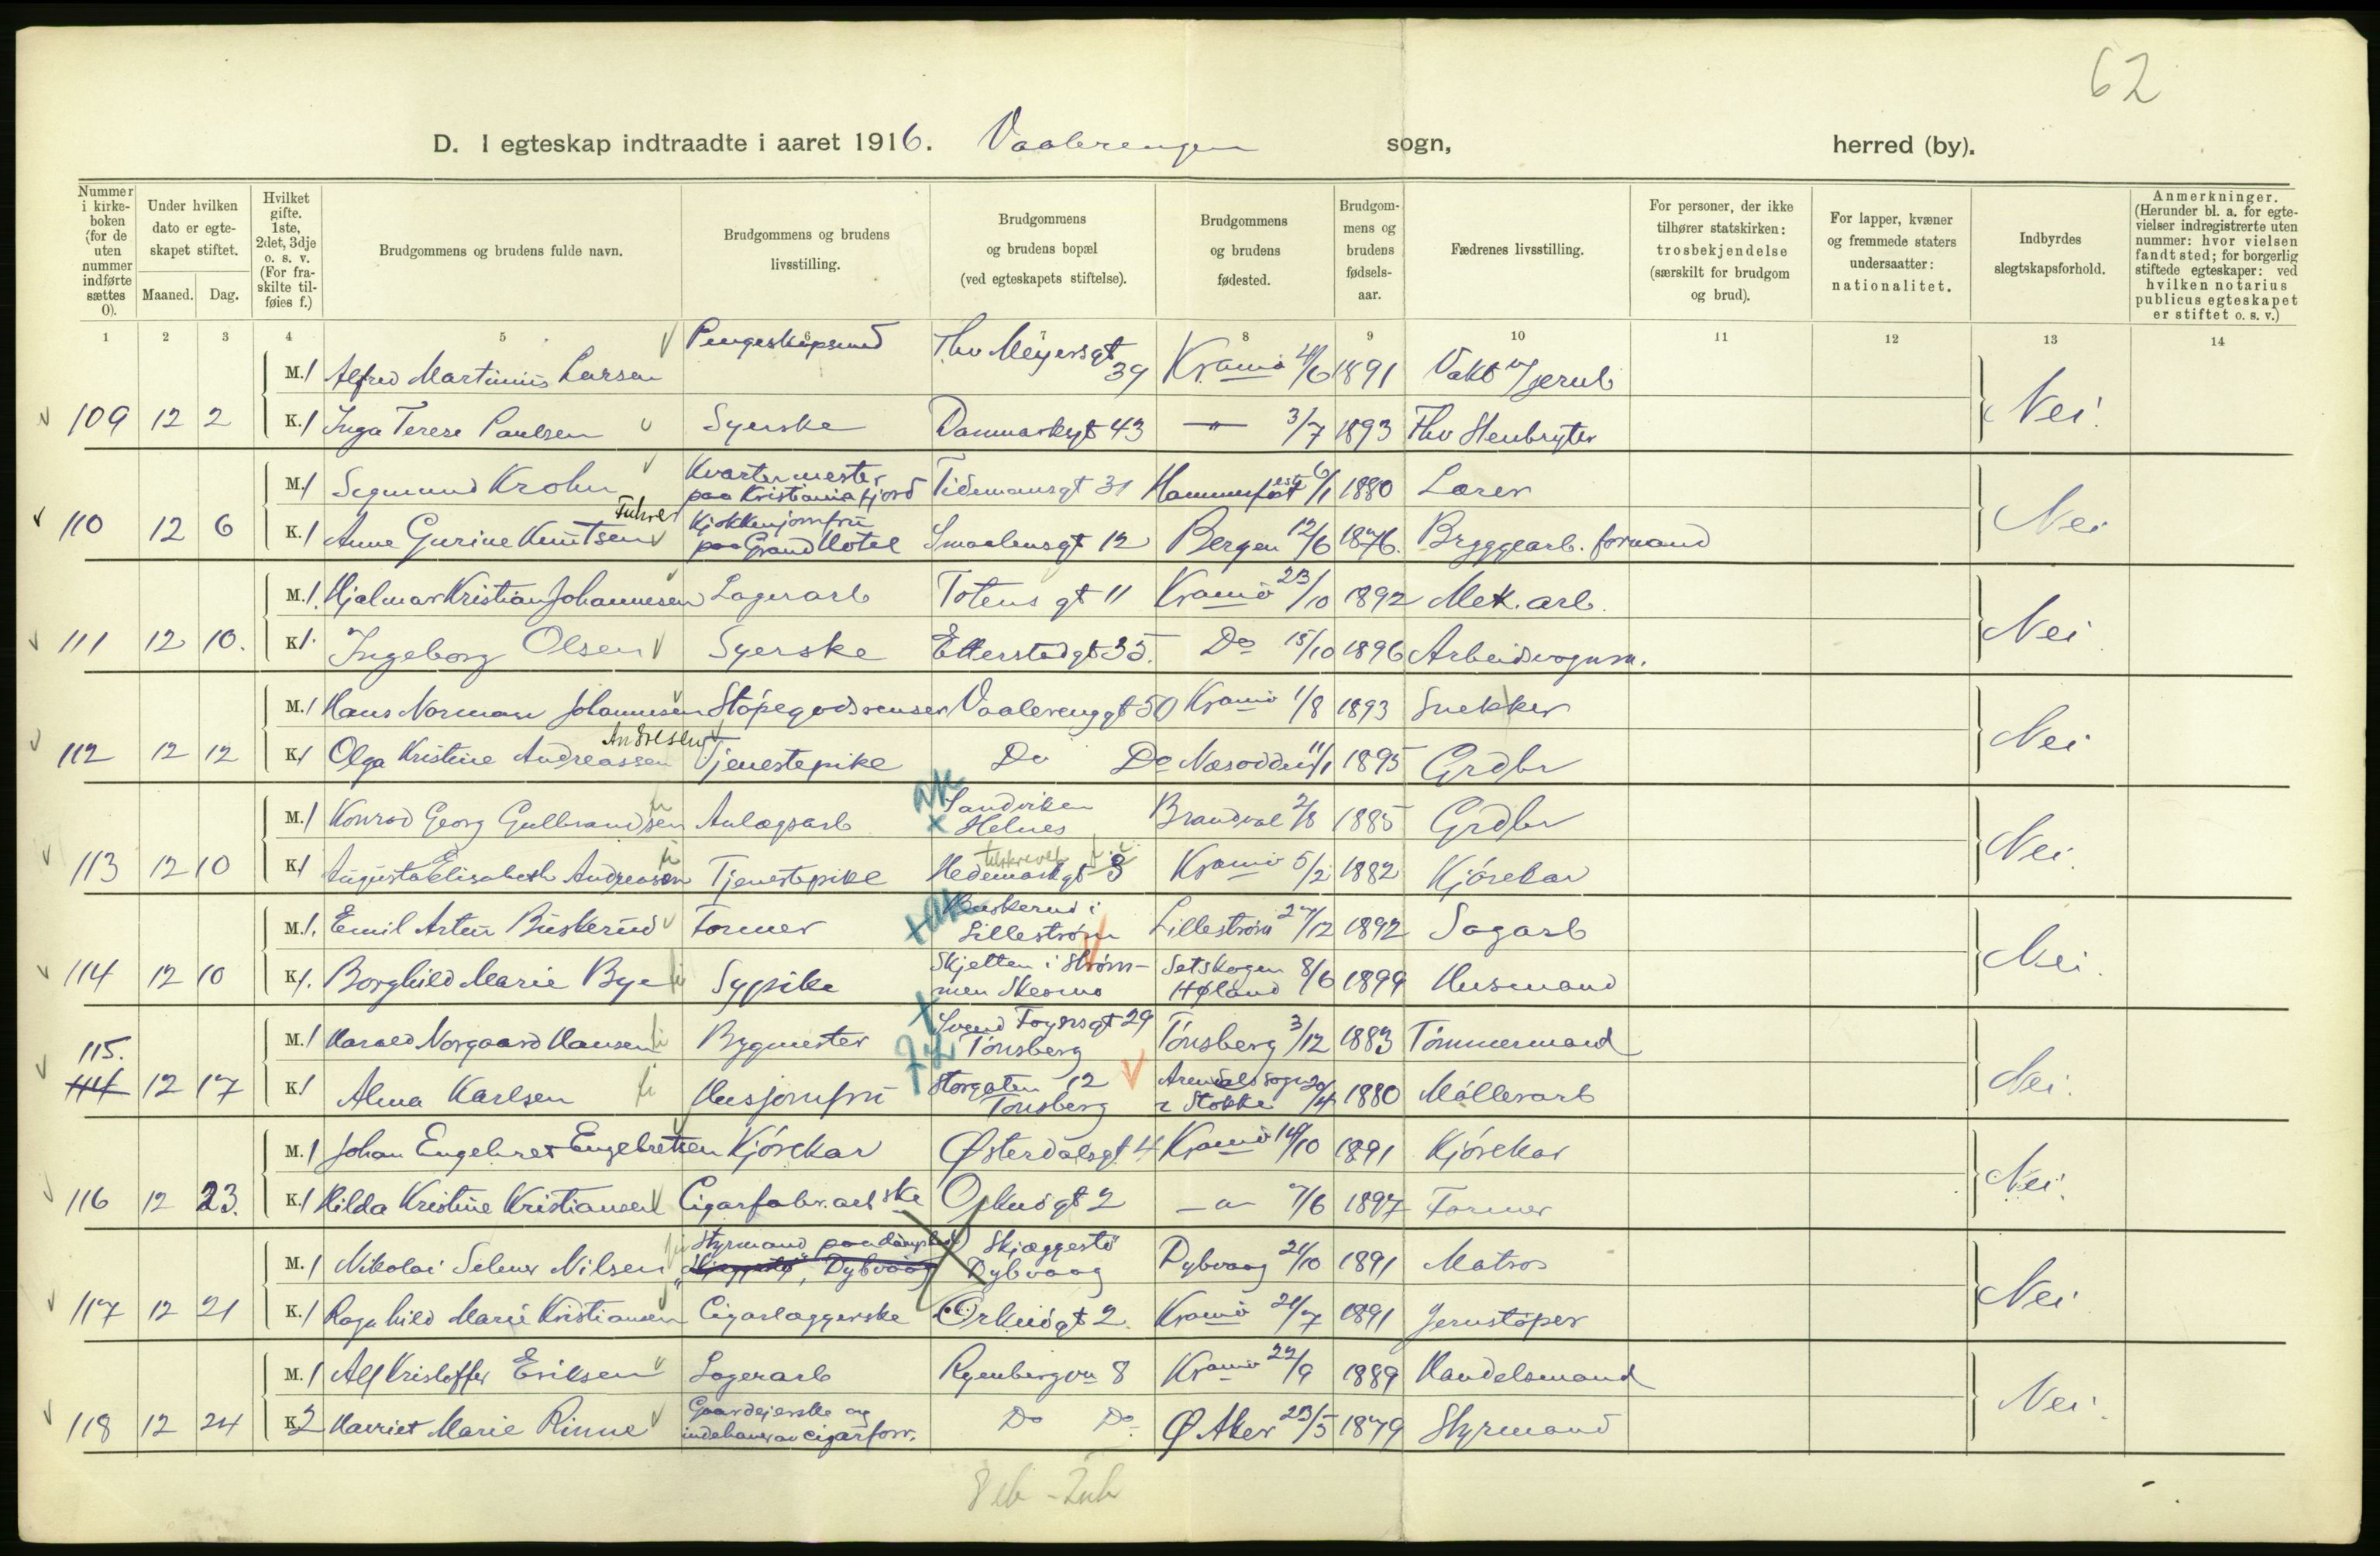 62
D. I egteskap indtraadte i aaret 1916. Vaalerengen sogn, herred (by).
Nummer i kirkeboken (for de uten nummer indførte sættes 0).
Under hvilken dato er egteskapet stiftet.
Maaned. Dag.
Hvilket gifte. 1ste, 2det, 3dje o. s. v. (For fraskilte tilføies f.)
Brudgommens og brudens fulde navn.
Brudgommens og brudens livsstilling.
Brudgommens og brudens bopæl (ved egteskapets stiftelse).
Brudgommens og brudens fødested.
Brudgommens og brudens fødselsaar.
Fædrenes livsstilling.
For personer, der ikke tilhører statskirken: trosbekjendelse (særskilt for brudgom og brud).
For lapper, kvæner og fremmede staters undersaatter: nationalitet.
Indbyrdes slegtskapsforhold.
Anmerkninger. (Herunder bl. a. for egtevielser indregistrerte uten nummer: hvor vielsen fandt sted; for borgerlig stiftede egteskaper: ved hvilken notarius publicus egteskapet er stiftet o. s. v.)
1 2 3 4 5 6 7 8 9 10 11 12 13 14
M. 1 Alfred Martinius Larsen Pengeskapsmed Thv Meyersgt 39 Kr.ania 4/6 1891 Vakt v/jernb
109 12 2 K. 1 Inga Terese Paulsen Syerske Danmarksgt 43 — " — 3/7 1893 Thv Stenbryter Nei.
M. 1 Sigmund Krohn Kvartermester paa Kristianiafjord Tidemansgt 31 Hammerfest 6/1 1880 Lærer
110 12 6 K. 1 Anne Gurine Knutsen Kjøkkenjomfru paa Grand Hotel Smaalensgt 12 Bergen 12/6 1876. Bryggearb. formand Nei
M. 1. Hjalmar Kristian Johannesen Lagerarb Totens gt 11 Kr.ania 23/10 1892 Mek. arb.
111 12 10. K 1. Ingeborg Olsen Syerske Etterstadgt 35. Do 15/10 1896 Arbeidsvognm. Nei
M. 1 Hans Norman Johannesen Støpegodsrenser Vaalerenggt 50 Kr.ania 1/8 1893 Snekker
112 12 12 K 1 Olga Kristine Andreassen Andresen Tjenestepike Do Do Næsodden 11/1 1895 Grdbr Nei
M. 1 Konrad Georg Gulbrandsen Anlægsarb Sandviken Helnes Brandval 2/8 1885 Grdbr
113 12 10 K 1 Augusta Elisabeth Andreasen Tjenestepike Hedemarkgt 3 Kr.ania 5/2 1882 Kjørekar Nei.
M. 1. Emil Artur Buskerud Former Buskerud i Lillestrøm Lillestrøm 27/12 1892 Sagarb
114 12 10 K 1. Borghild Marie Bye Sypike Skjetten i Strømmen Skedsmo Setskogen Høland 8/6 1899 Husmand Nei.
M. 1 Harald Norgaard Hansen Bygmester Svend Foynsgt 29 Tønsberg Tønsberg 3/12 1883 Tømmermand
115. 114 12 17 K 1 Alma Karlsen Husjomfru Storgaten 12 Tønsberg Stokke 20/4 1880 Møllerarb Nei.
M. 1 Johan Engebret Engebretsen Kjørekar Østerdalsgt. 4 Kr.ania 14/10 1891 Kjørekar
116 12 23. K. 1 Hilda Kristine Kristiansen Cigarfabr. arb ske Orknøgt 2 — " — 7/6 1897 Former Nei.
M. 1 Nikolai Selmer Nilsen Styrmand paa dampskib "Skjæggestø", Dybvaag Skjæggestø Dybvaag Dybvaag 21/10 1891 Matros
117 12 21 K. 1 Ragnhild Marie Kristiansen Cigarlæggerske Orknøgt 2. Kr.ania 21/7 1891 Jernstøper Nei
M. 1 Alf Kristoffer Eriksen Lagerarb Ryenbergvn 8 Kr.ania 22/9 1889 Handelsmand
118 12 24 K 2 Harriet Marie Rinne Gaardejerske og indehaver av cigarforr. Do Do Ø Aker 23/5 1879 Styrmand Nei.